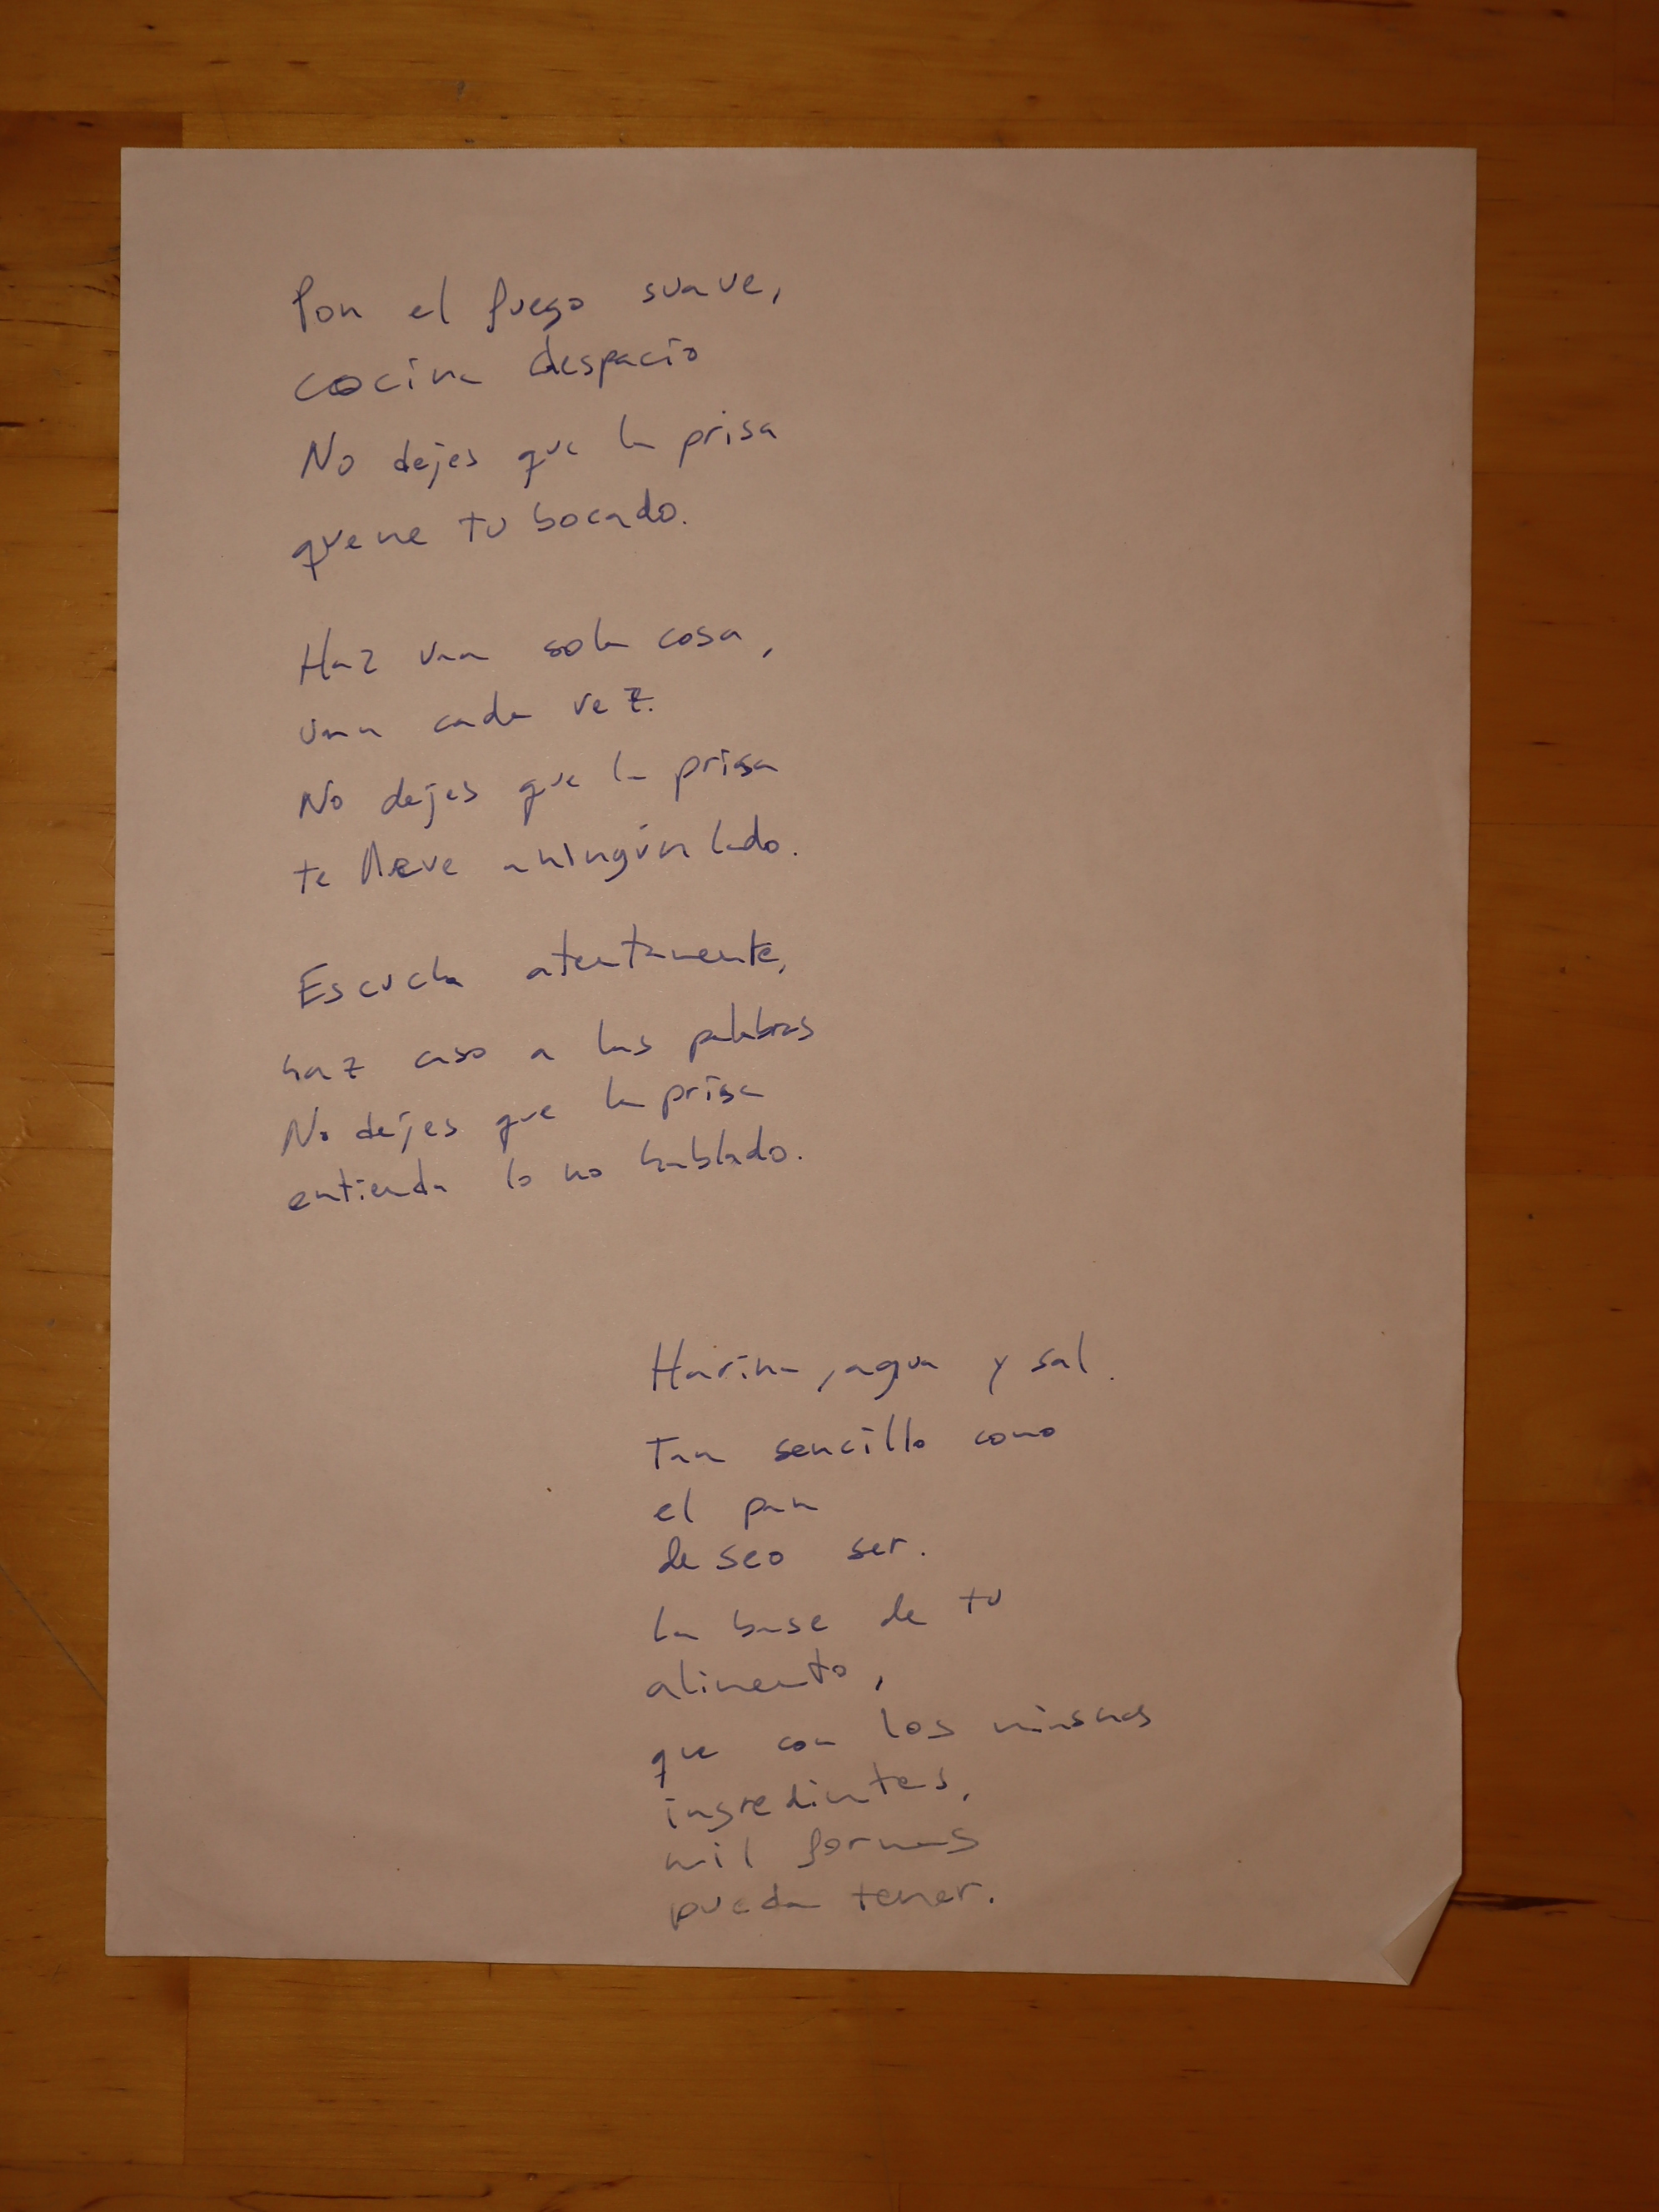 Pon el fuego suave,
cocina despacio
No dejes que la prisa
queme tu bocado.
Haz una sola cosa,
una cada vez.
No dejes que la prisa
te lleve a ningún lado.
Escucha atentamente,
haz caso a las palabras
No dejes que la prisa
entienda lo no hablado.
Harina, agua y sal.
Tan sencillo como
el pan
deseo ser.
La base de tu
alimento,
que con los mismos
ingredintes,
mil formas
pueda tener.